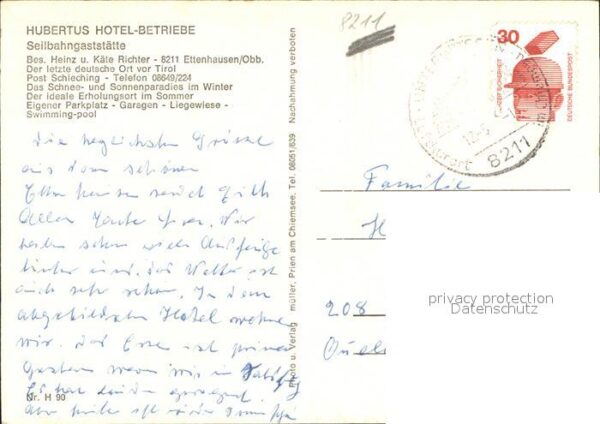 HUBERTUS HOTEL-BETRIEBE
Seilbahngaststätte
Bes. Heinz u. Käte Richter - 8211 Ettenhausen/Obb.
Der letzte deutsche Ort vor Tirol
Post Schleching - Telefon 08649/224
Das Schnee- und Sonnenparadies im Winter
Der ideale Erholungsort im Sommer
Eigener Parkplatz - Garagen - Liegewiese -
Swimming-pool
Die herzlichsten Grüsse
aus dem schönen
Ettenhausen
allen Wir
haben schon viele Ausflüge
hinter uns. Das Wetter ist
auch sehr schön. In dem
abgebildeten Hotel wohnen
wir. Das Essen ist prima
Gestern waren wir in
Es hat leider geregnet.
Aber heute ist wieder
Nr. H 90
Photo u. Verlag müller, Prien am Chiemsee. Tel. 08051/839 Nachahmung verboten
8211
30
DEUTSCHE BUNDESPOST
8211
Familie
H
208
privacy protection
Datenschutz